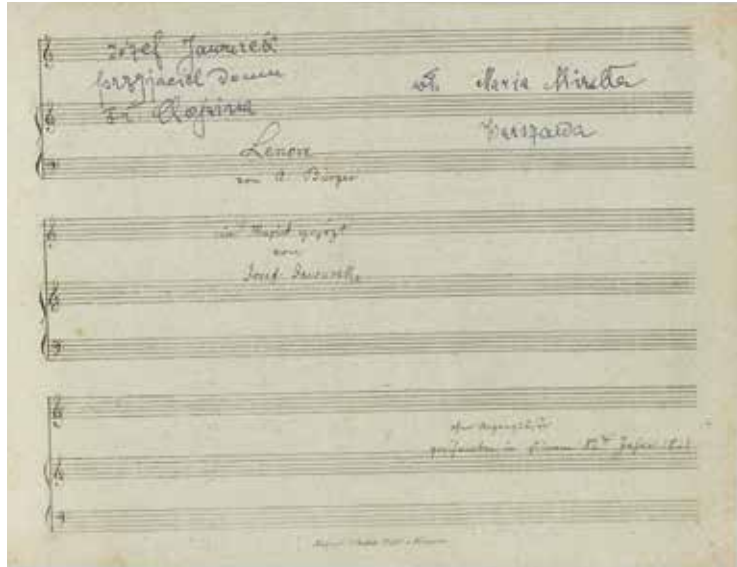 Józef Jawurek
przyjaciel domu
Fr. Chopina
wł. Maria Mirska
Warszawa
Lenore
von A. Bürger
in Musik gesezt
von
Josef Jawurek
in seinem Jahre